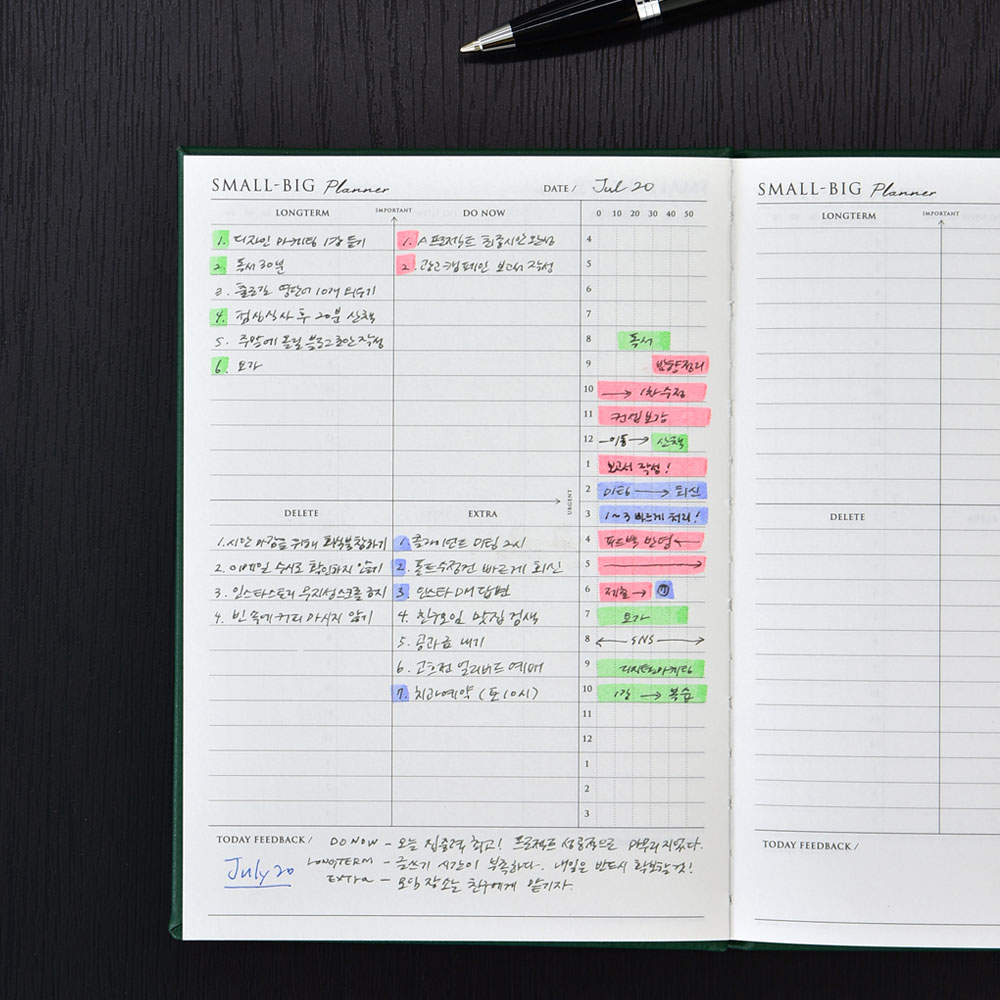 SMALL-BIG Planner
DATE / Jul 20
LONGTERM
IMPORTANT
DO NOW
0 10 20 30 40 50
1. 디자인 마케팅 1강 듣기
2. 독서 30분
3. 출근길 영단어 10개 외우기
4. 점심식사 후 20분 산책
5. 주말에 올릴 블로그 초안 작성
6 요가
1. A프로젝트 최종시안 완성
2. 광고캠페인 보고서 작성
URGENT
DELETE
EXTRA
1. 시간 아낌을 위해
2. 이메일 수시로 확인하지 않기
3. 인스타스토리 무지성스크롤 금지
4. 빈 속에 커피 마시지 않기
1. 클라이언트 미팅 2시
2. 폴트수정건 빠르게 회신
3. 인스타 DM 답변
4. 친구모임 맛집 검색
5. 공과금 내기
6. 고흐전 얼리버드 예매
7. 치과예약 (토 10시)
4
5
6
7
8 독서
9 방향정리
10 → 1차 수정
11 컨셉 보강
12 -이동→ 산책
1 보고서 작성!
2 미팅 → 회신
3 1~3 빠르게 처리!
4 피드백 반영←
5 →
6 제출→ ⑦
7 요가
8 ← SNS →
9 디자인마케팅
10 1강 → 복습
11
12
1
2
3
TODAY FEEDBACK /
July 20
DO NOW - 오늘 집중력 최고! 프로젝트 성공적으로 마무리 지었다.
LONGTERM - 글쓰기 시간이 부족하다. 내일은 반드시 확보할 것!
EXTRA - 모임 장소는 친구에게 맡기자.
SMALL-BIG Planner
LONGTERM
IMPORTANT
DELETE
TODAY FEEDBACK /